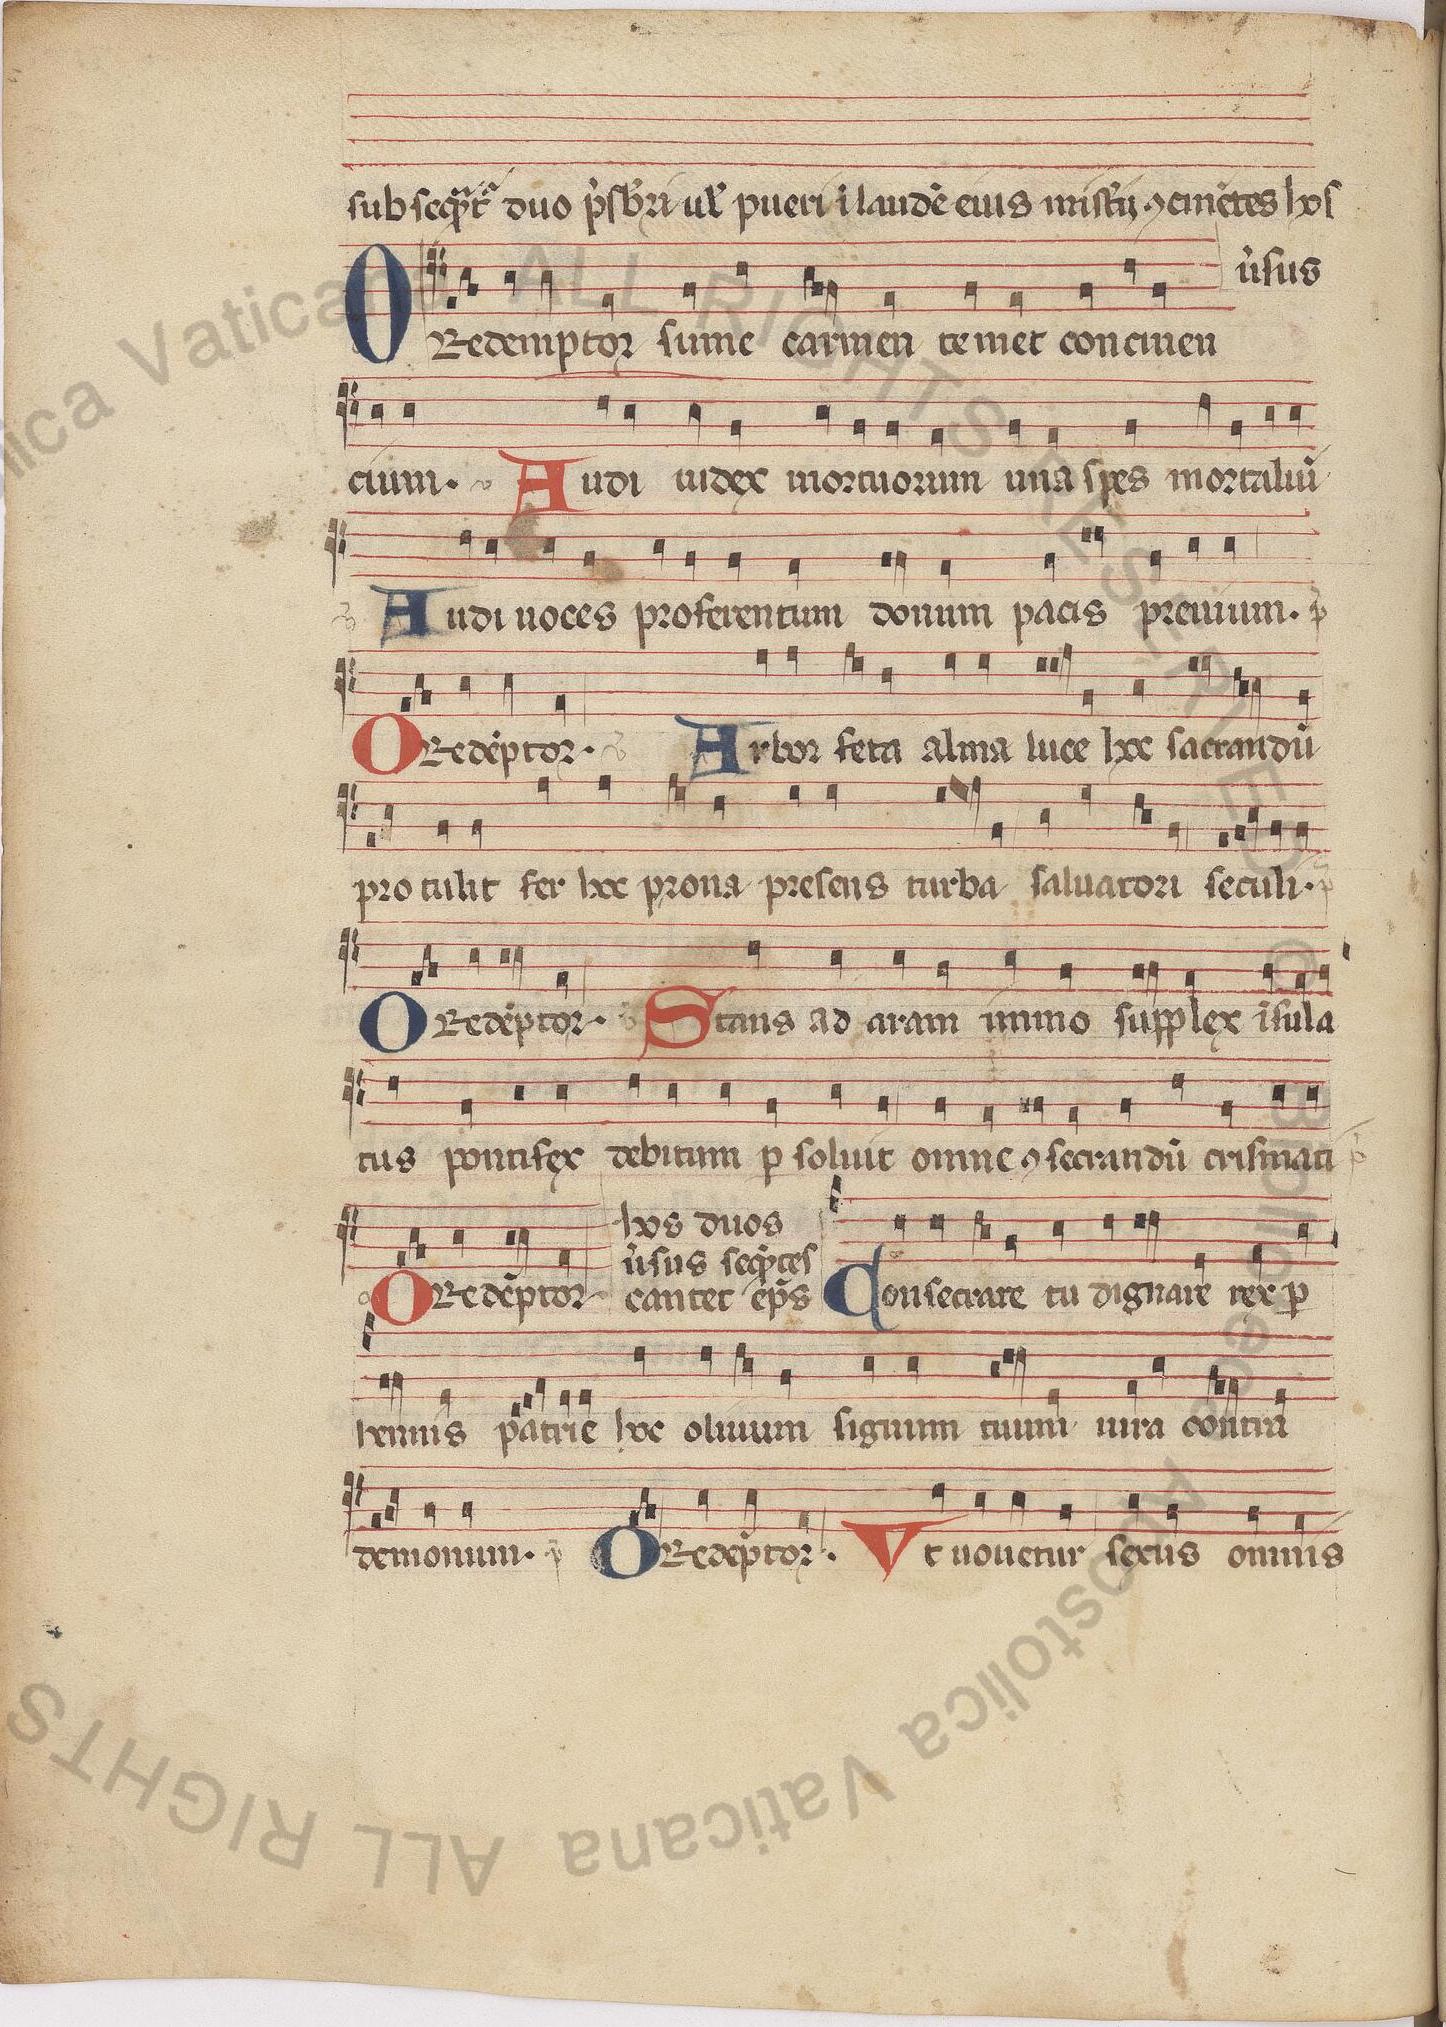 subsequūtᷣ duo p̄sb̄ri ul̓ pueri ī laudē eius mist̓ij ꝯcinētes hos
v̓sus
O Redemptor sume carmen temet concinen
cium. Audi iudex mortuorum una spes mortaliū
Audi uoces proferentum donum pacis preuium. ꝶ
O Redēptor. ꝟ Arbor feta alma luce hoc sacrandū
protulit fer hoc prona presens turba saluatori seculi. ꝶ
O Redēptor. ꝟ Stans ad aram immo supplex īfula
tus pontifex debitum p soluit omne ꝯsecrandū crismate ꝶ
O Redēptor hos duos
v̓sus seq̄ntes
cantet ep̄s Consecrare tu dignare rex p
hennis patrie hoc oliuum signum tuum iura contra
demonum. ꝶ O Redēptor. Vt nouetur sexus omnis
ALL RIGHTS RESERVED
© Biblioteca Apostolica Vaticana
ALL RIGHTS